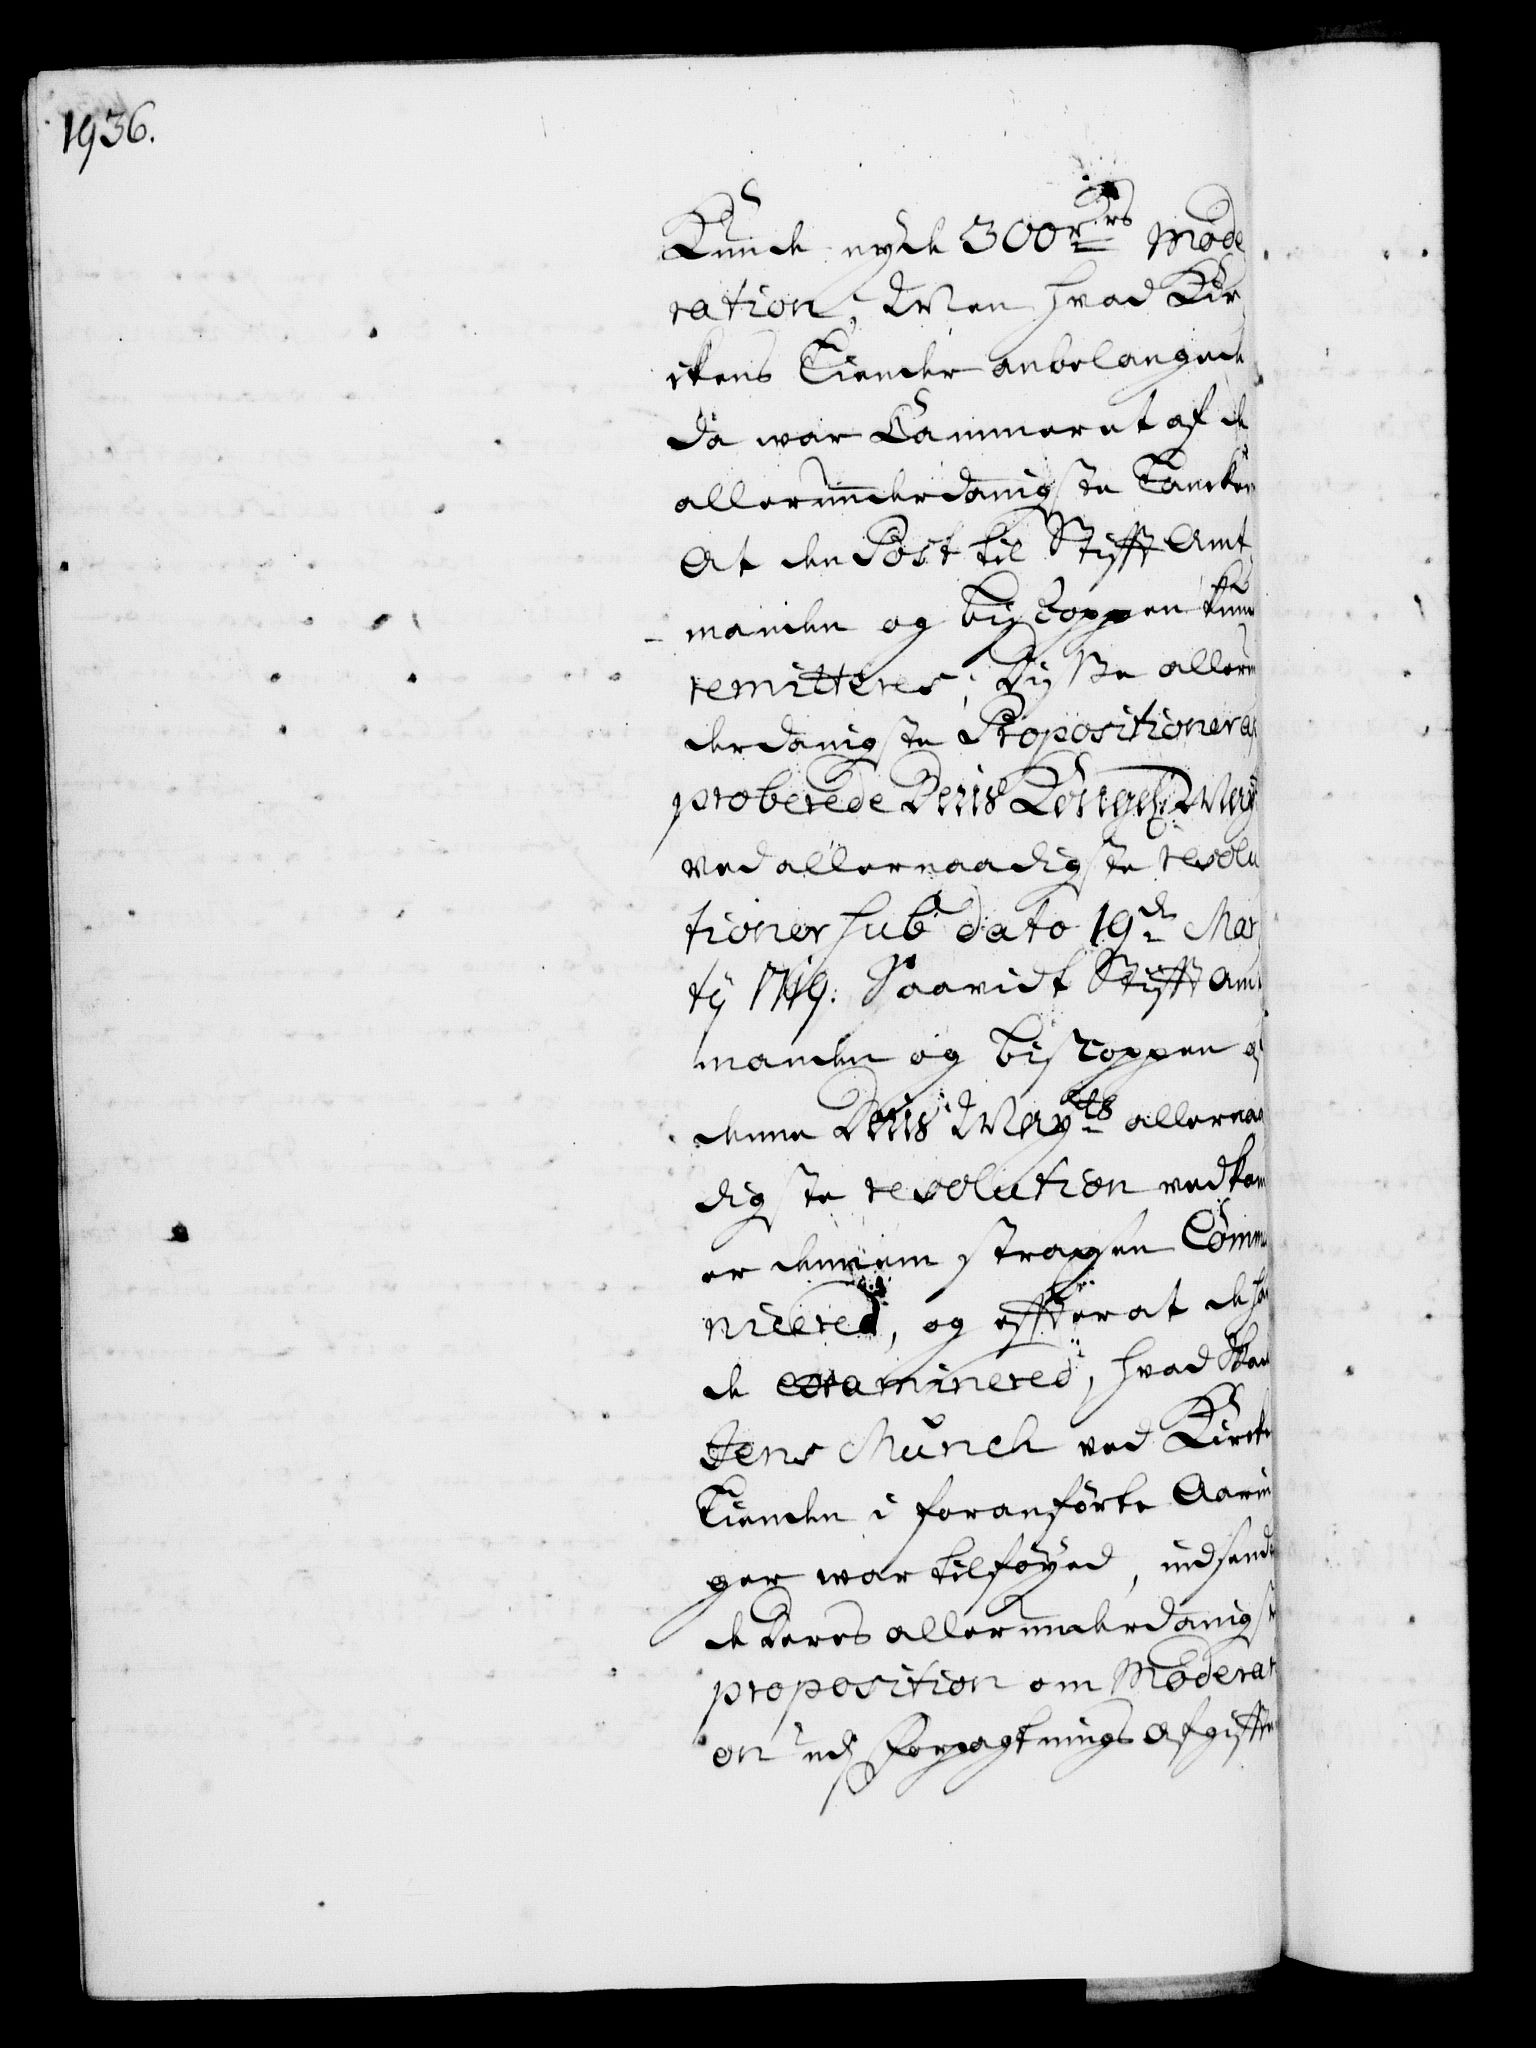 1936.
Kunde nyde 300 rdrs Mode
ration, Men hvad Kir
ckens Tiender anbelangede
da war Cammeret af de
allerunderdanigste Tancker
At den Post til Stifft Amt
manden og biscoppen kunde
remitteres; Disse allerun
derdanigste Propositioner ap
proberede Deris Kongel: May
ved allernaadigste resolu
tioner sub dato 19de Mar
tij 1719. Saavidt Stifft Amt
manden og biscoppen af
denne Deris Mayts allernaa
digste resolution vedkom
er dennem straxen Commu
nicered, og effter at de haf
de examinered, hvad Skade
Jens Munch ved Kircke
Tienden i foranførte Aarin
ger war tilføyed, indsend
de Deres allerunderdanigste
proposition om Moderati
on udj Forpagtnings Afgifften